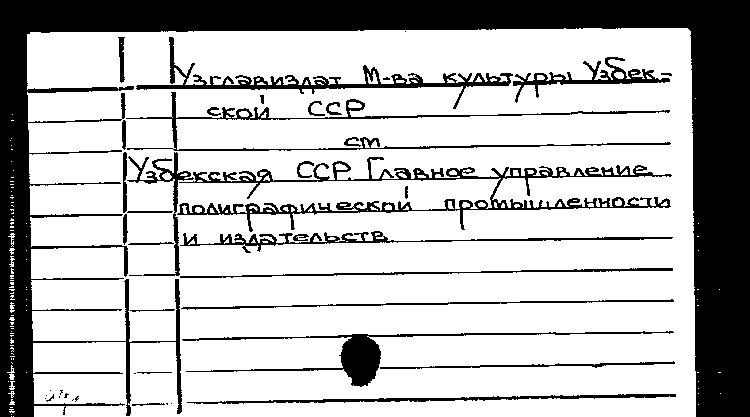 Узглавиздат М-ва культуры Узбек-
ской ССР
см
Узбекская ССР. Главное управление
полиграфической промышленности
и издательств.